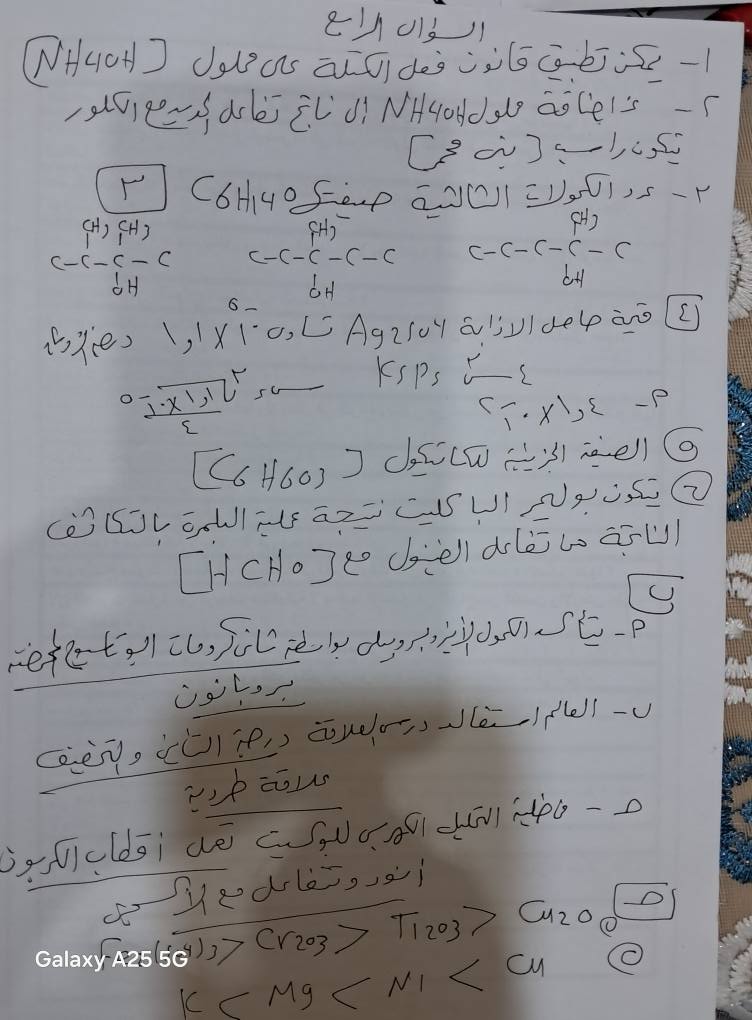 السؤال الرابع
1- يمكن تطبيق قانون فعل الكتلة على محلول [NH4OH]
2- عند اضافة محلول NH4OH الى ناتج تفاعل الحديد مع الكلور
يتكون راسب [بنى محمر]
3- عدد الكحولات الثالثية صيغتها C6H14O [3]
CH3 CH3 CH3 CH3
C-C-C-C C-C-C-C-C C-C-C-C-C
OH OH OH
[4] قيمة حاصل الاذابة Ag2SO4 تساوى 1,1X10-6
Ksp
م- 1,4X10-2
1,1X10-5
4
(5) الصيغة الجزيئية للكاتيكول [C6H6O3]
(6) يتكون بوليمر الباكليت نتيجة عملية البلمرة بالتكاثف
الناتجة من تفاعل الفينول مع [HCHO]
[ب]
م- يتأكسد الكحول الأيزوبروبيلى بواسطة ثانى كرومات البوتاسيوم المحمضة
بروبانون
ب- العالم استفالد درس العلاقة درجة التأين والتخفيف
علاقة طردية
ج- خلية التحليل الكهربى للبوكسيت تعمل أقطاب الكربون
أنود وتتفاعل مع الأكسجين
[ج] Cu2O < Ti2O3 < Cr2O3 <
Cu > Ni > Mg > K
Galaxy A25 5G